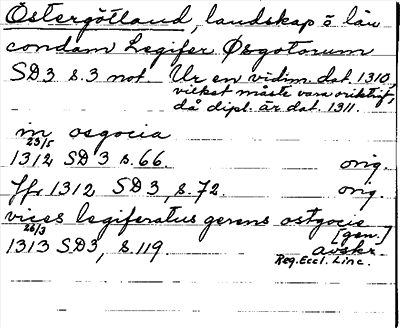 Östergötland, landskap o län
condam Legifer Osgotorum
SD3 s.3 not. Ur en vidim. dat. 1310,
vilket måste vara oriktigt,
då dipl. är dat. 1311.
in osgocia
23/5
1312 SD 3 s.66. orig.
1312 SD 3, s.72. orig.
vices legiferatus gerens ostgocie
[gen.]
26/3
1313 SD3, s.119. avskr.
Reg. Eccl. Linc.